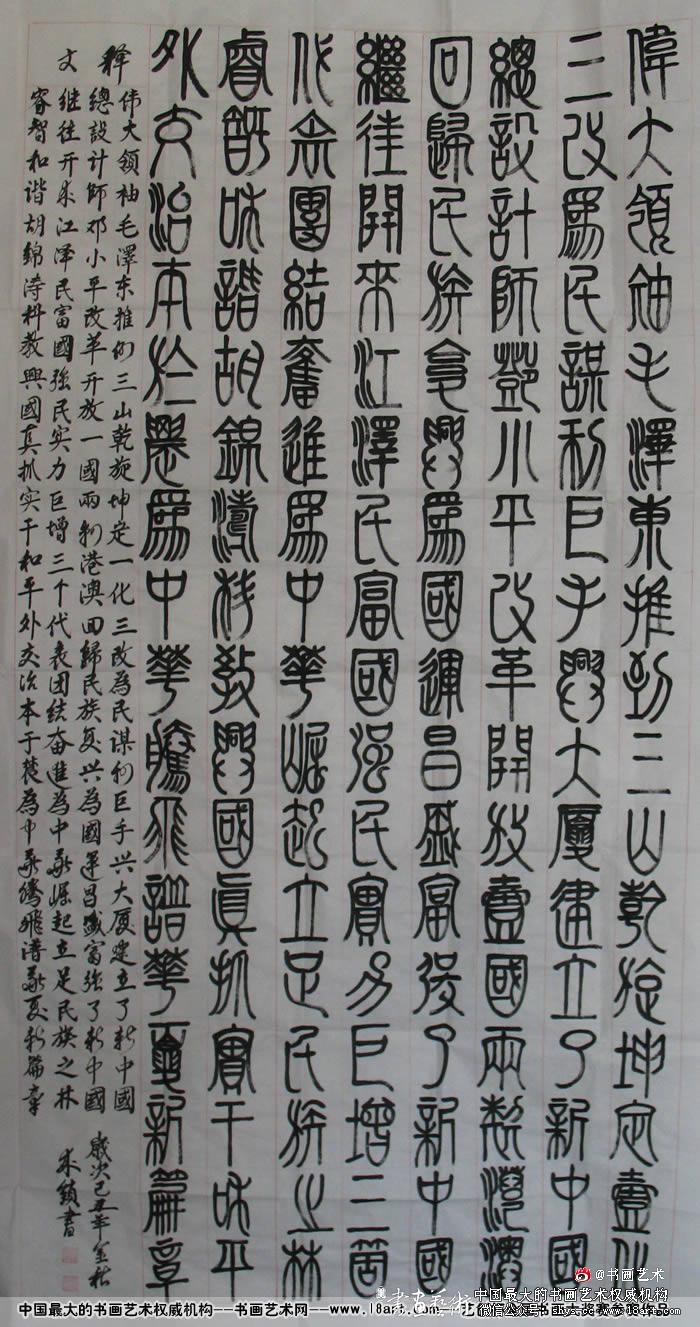 偉大領袖毛澤東推到三山乾旋坤定壹化
三改爲民謀利巨手興大廈建立了新中國
總設計師鄧小平改革開放壹國兩製港澳
回歸民族复興爲國運昌盛富强了新中國
繼往開來江澤民富國强民實力巨增三箇
代表團結奮進爲中華崛起立足民族之林
睿智和諧胡錦濤科教興國眞抓實干和平
外交治本於農爲中華騰飛譜華夏新篇章
释文
伟大领袖毛澤东推倒三山乾旋坤定一化三改為民谋利巨手兴大厦建立了新中國
總設计師邓小平改革开放一國兩制港澳回歸民族复兴為國運昌盛富强了新中國
继往开来江泽民富國强民实力巨增三个代表团结奋進為中华崛起立足民族之林
睿智和谐胡锦涛科教興國真抓实干和平外交治本于農為中华腾飞谱华夏新篇章
歲次己丑年金秋
書
@书画艺术
中国最大的书画艺术权威机构
中国最大的书画艺术权威机构---书画艺术网---www.18art.com